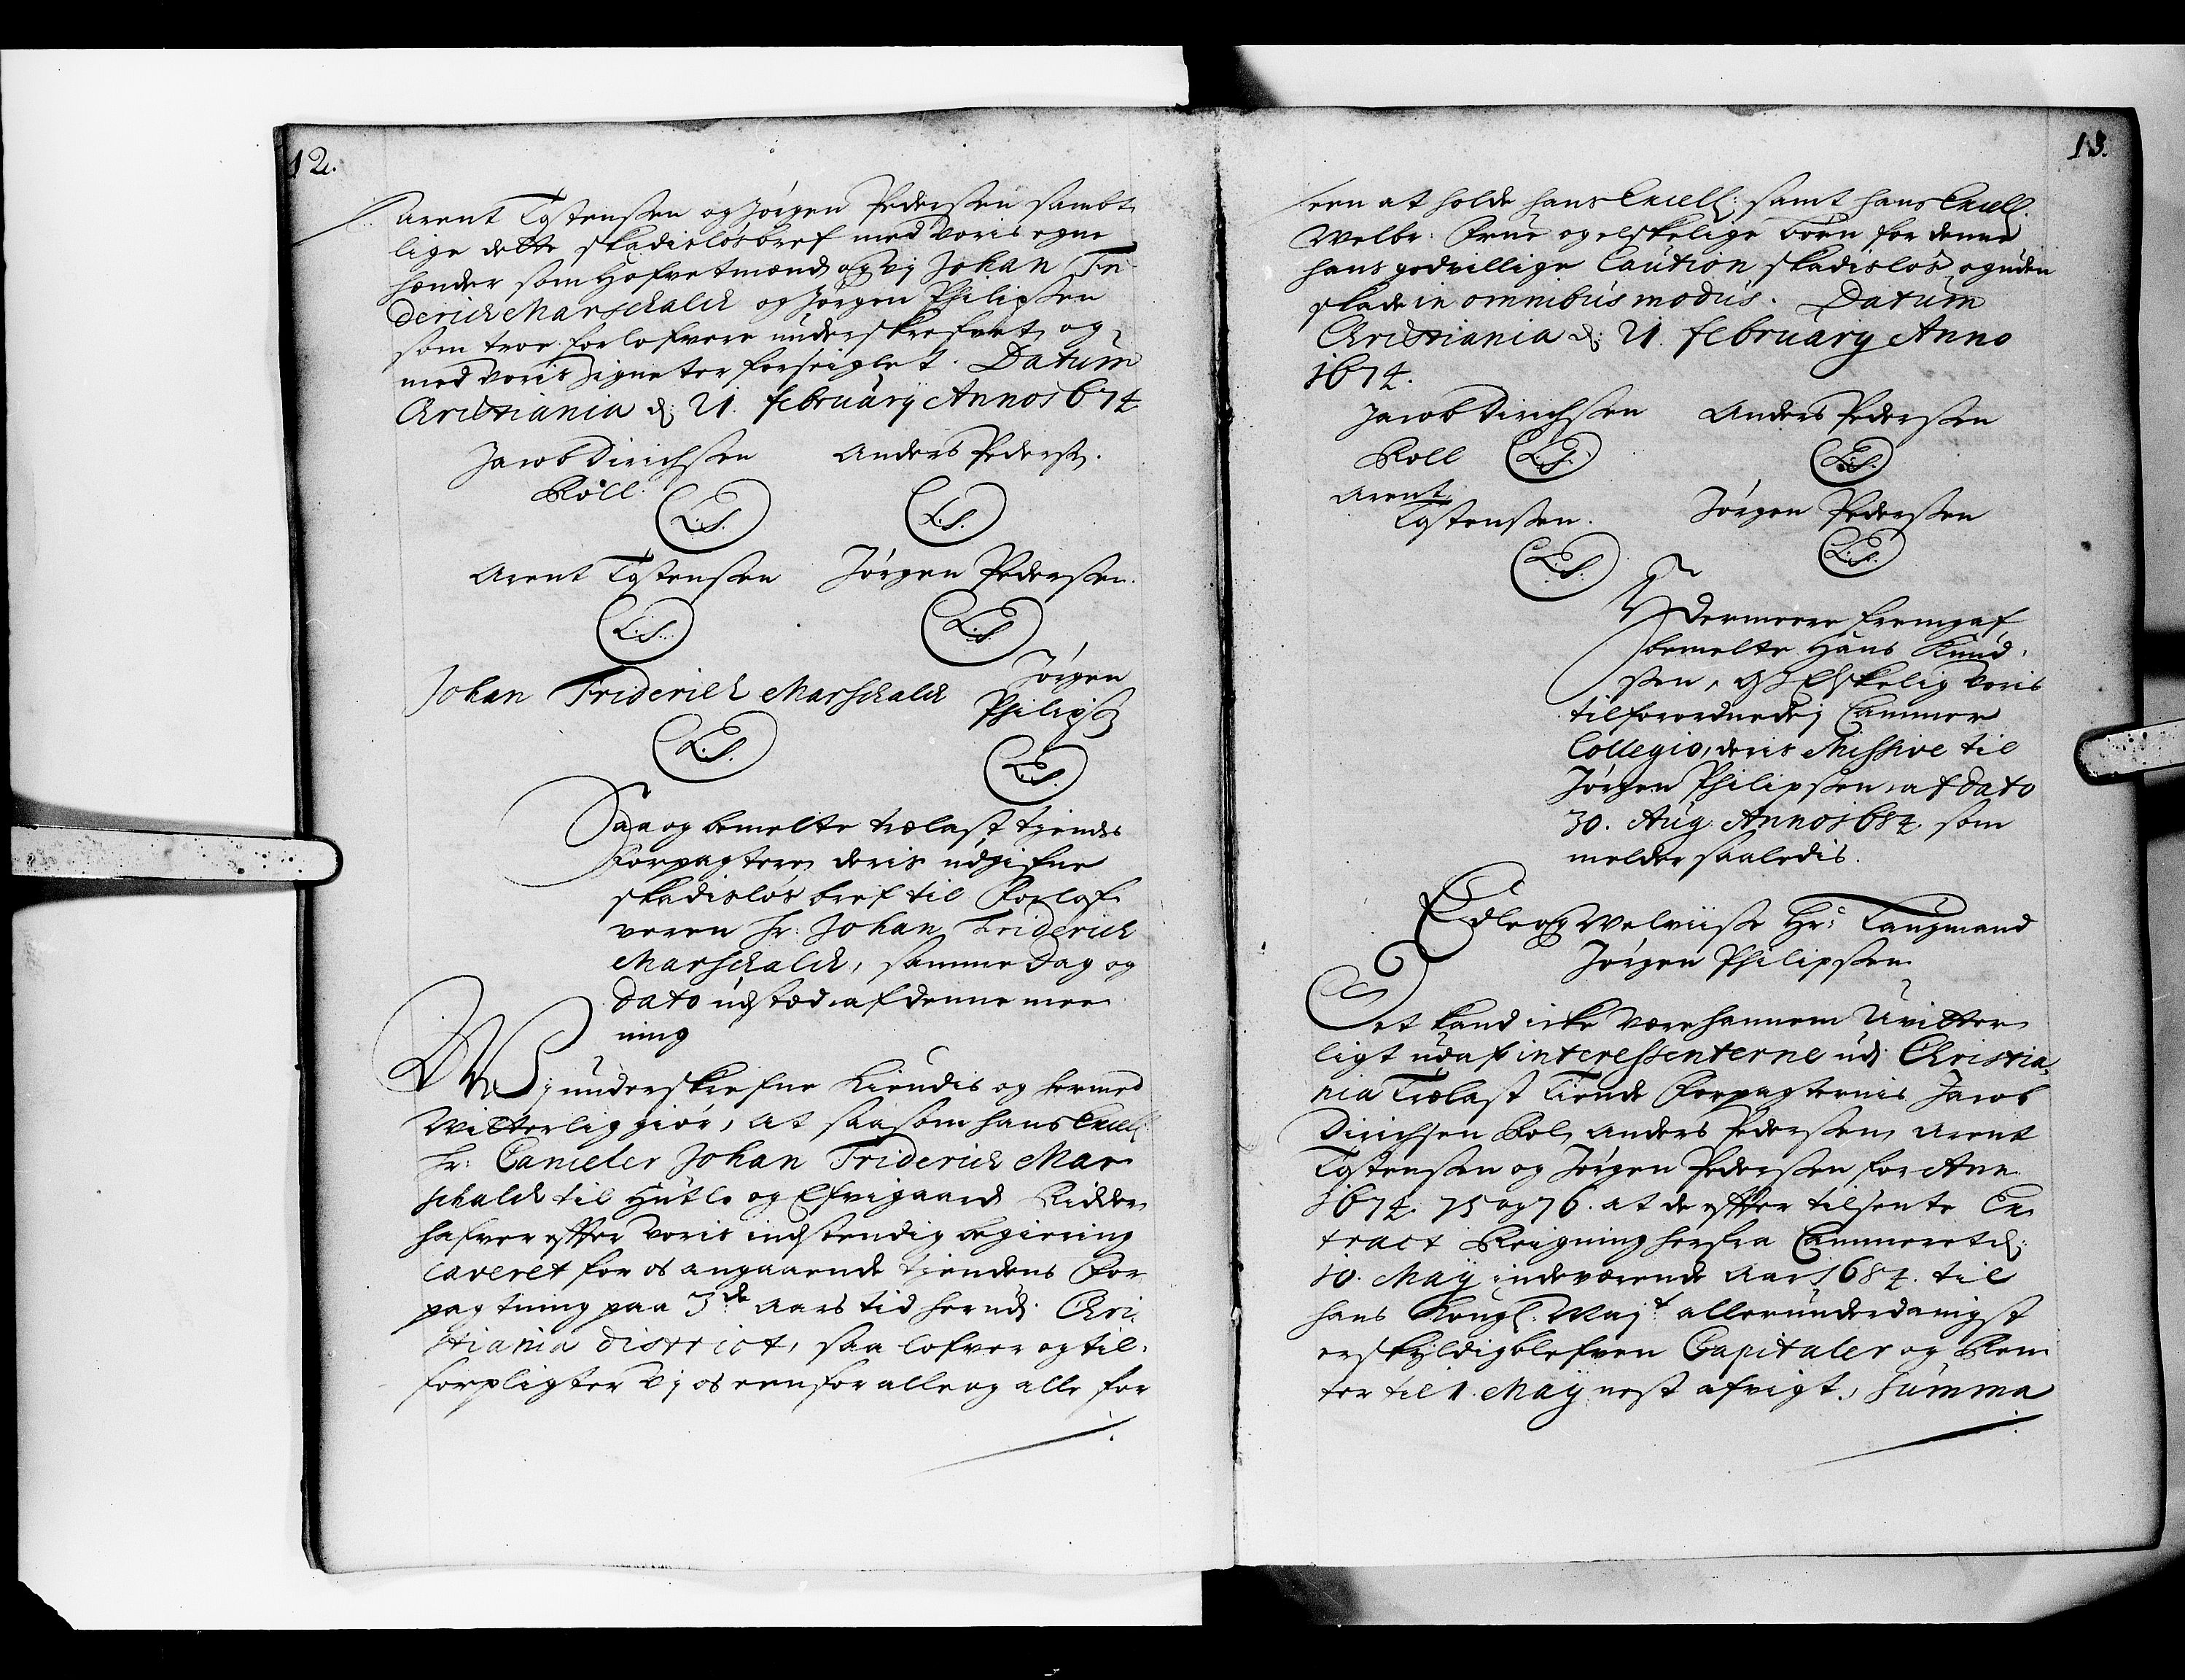 12.
Arent Tostensen og Jørgen Pedersen sambt
lige dette skadisløsbref med voris egne
hender som Hofvetmænd og vj Johan Fri
derich Marschalch og Jørgen Philipsen
som troe forlofvere underskrefvet, og
med voris Signeter forseiglet. Datum
Christiania d: 21. february Anno 1674
Jacob Dirichsen Anders Peders.
Roll.
L.S. L.S.
Arent Tostensen Jørgen Pedersen.
L.S. L.S.
Jørgen
Johan Friderich Marschalch Philips
L.S. L.S.
Saa og bemelte trælast tiendes
Forpagtere, deris udgifne
skadisløs bref til Forlof
veren hr. Johan Friderich
Marschalch, samme Dag og
Dato udstæd, af denne mee
ning
Wj underskrefne kiendis og hermed
Witterlig giør, At saasom hans Excell:
hr: Canceler Johan Friderich Mar
schalch til Hutle og Efvigaard Ridder,
hafver efter voris indstendig begiering
caveret for os angaaende tiendens For
pagtning paa 3de Aars tid her ud. Chri
stiania district, saa lofver og til
forpligter Vj os een for alle og alle for
13.
een at holde hans Excell: samt hans Excell.
Welbr: Frue og elskelige börn for denne
hans godvillige Caution skadisløs og uden
skade in omnibus modus. Datum
Christiania d: 21. february Anno
1674.
Jacob Dirichsen Anders Pedersen
Roll L.S. L.S.
Arent
Tostensen. Jørgen Pedersen
L.S. L.S.
Ydermeere fremgaf
bemelte Hans Knud
sen, os Elskelig voris
tilforordnede j Cammer
Collegio, deris Missive til
Jørgen Philipsen, af dato
30. Aug. Anno 1684. som
melder saaledis.
Edle og Welviise Hr: Laugmand
Jørgen Philipsen
Det kand icke være hannem Uvitter
ligt udaf interessenterne udj Christia
nia Trælast Tiende Forpagternis Jacob
Dirichsen Rol, Anders Pedersen, Arent
Tostensen og Jørgen Pedersen, for Ann
1674. 75 og 76. at de efter tilsente Ex
tract Reigning herfra Cammeret d:
10. Maÿ indeværende Aar 1684. til
hans Kongl: Majt allerunderdanigst
erskyldig blefven Capitaler og Ren
ter til 1. Maÿ nest afvigt, Summa